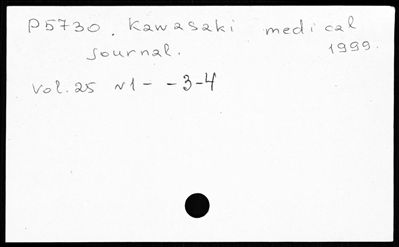 P5730. Kawasaki medical
journal. 1999.
Vol. 25 N1 - - 3-4